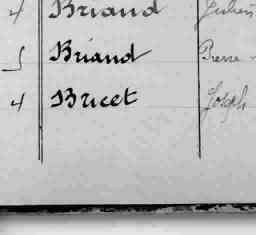 4 Briand Julien
5 Briand Pierre
4 Bricet Joseph